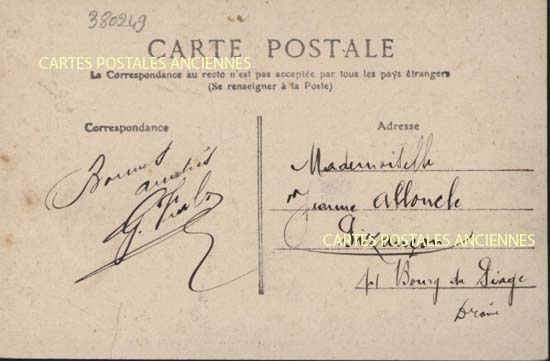 380249
CARTE POSTALE
CARTES POSTALES ANCIENNES
La Correspondance au recto n'est pas acceptée par tous les pays étrangers
(Se renseigner à la Poste)
Correspondance
Bonnes
amitiés
G.
Adresse
Mademoiselle
Jeanne Allouch
CARTES POSTALES ANCIENNES
pt Bourg de Péage
Drôme